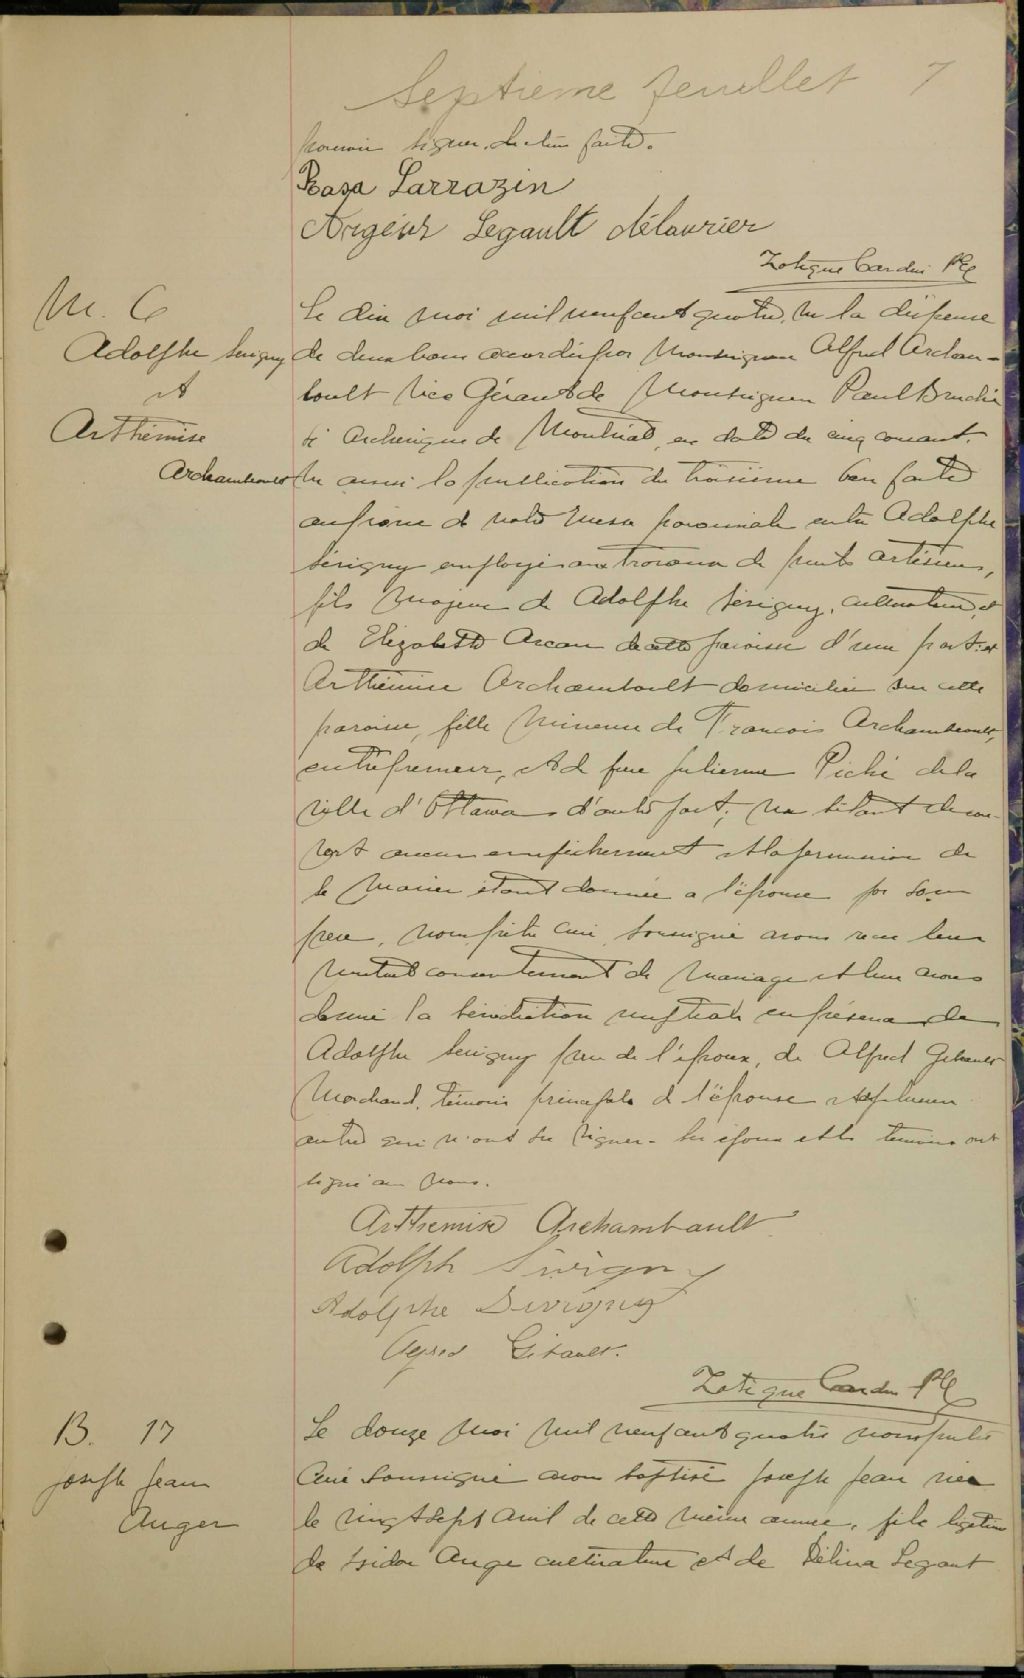 Septième feuillet 7
signer. lecture faite.
Rosa Larrazin
Legault délaurier
Zotique Cardin Ptre
M. 6
Adolphe Sevigny
et
Arthémise
Archambault
Le dix mai mil neuf cent quatre, vu la dispense
de deux bans accordée par Monseigneur Alfred Archam-
bault Vice Gérant de Monseigneur Paul Bruchési
Archevêque de Montréal, en date du cinq courant.
Vu aussi la publication du troisième ban faite
au prone de notre messe paroissiale entre Adolphe
Sévigny employé aux travaux de puits artésiens,
fils majeur de Adolphe Sévigny, cultivateur, et
de Elizabeth Arcan de cette paroisse d'une part: et
Arthémise Archambault domiciliée sur cette
paroisse, fille mineure de Francois Archambault,
entrepreneur, et de feue Julienne Piché de la
ville d'Ottawa d'autre part; ne s'étant decou-
vert aucun empêchement et la permission de
se marier étant donnée a l'épouse par son
pere, nous prêtre curé soussigné avons recu leur
mutuel consentement de mariage et leur avons
donné la bénédiction nuptiale en présence de
Adolphe Sevigny pere de l'époux, de Alfred Gibault
Marchand, témoin principale de l'épouse et plusieurs
autres qui n'ont su signer - les époux et les temoins ont
signé avec nous.
Arthemise Archambault
Adolph Sivigny
Adolphe Sevigny
Gibault.
Zotique Cardin Ptre
B. 17
Joseph Jean
Auger
Le douze mai mil neuf cent quatre nous prêtre
Curé soussigné avons baptisé Joseph Jean née
le vingt sept avril de cette même année, fils légitime
de Isidor Auge cultivateur et de Délina Legault